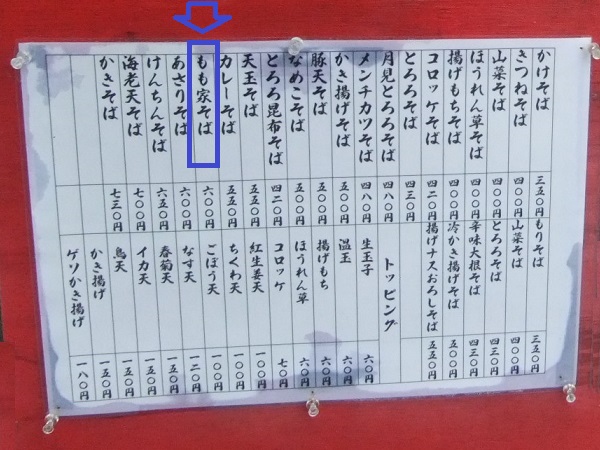 かけそば 三五〇円
きつねそば 四〇〇円
山菜そば 四〇〇円
ほうれん草そば 四〇〇円
揚げもちそば 四〇〇円
コロッケそば 四二〇円
とろろそば 四三〇円
月見とろろそば 四八〇円
メンチカツそば 四八〇円
かき揚げそば 五〇〇円
豚天そば 五〇〇円
なめこそば 五〇〇円
とろろ昆布そば 四二〇円
天玉そば 五五〇円
カレーそば 五五〇円
もも家そば 六〇〇円
あさりそば 六〇〇円
けんちんそば 六五〇円
海老天そば 七〇〇円
かきそば 七三〇円
もりそば 三五〇円
山菜そば 四〇〇円
とろろそば 四三〇円
辛味大根そば 四三〇円
冷かき揚げそば 五〇〇円
揚げナスおろしそば 五五〇円
トッピング
生玉子 六〇円
温玉 六〇円
揚げもち 六〇円
ほうれん草 六〇円
コロッケ 七〇円
紅生姜天 一〇〇円
ちくわ天 一〇〇円
ごぼう天 一〇〇円
なす天 一二〇円
春菊天 一五〇円
イカ天 一五〇円
鳥天 一五〇円
かき揚げ 一五〇円
ゲソかき揚げ 一八〇円